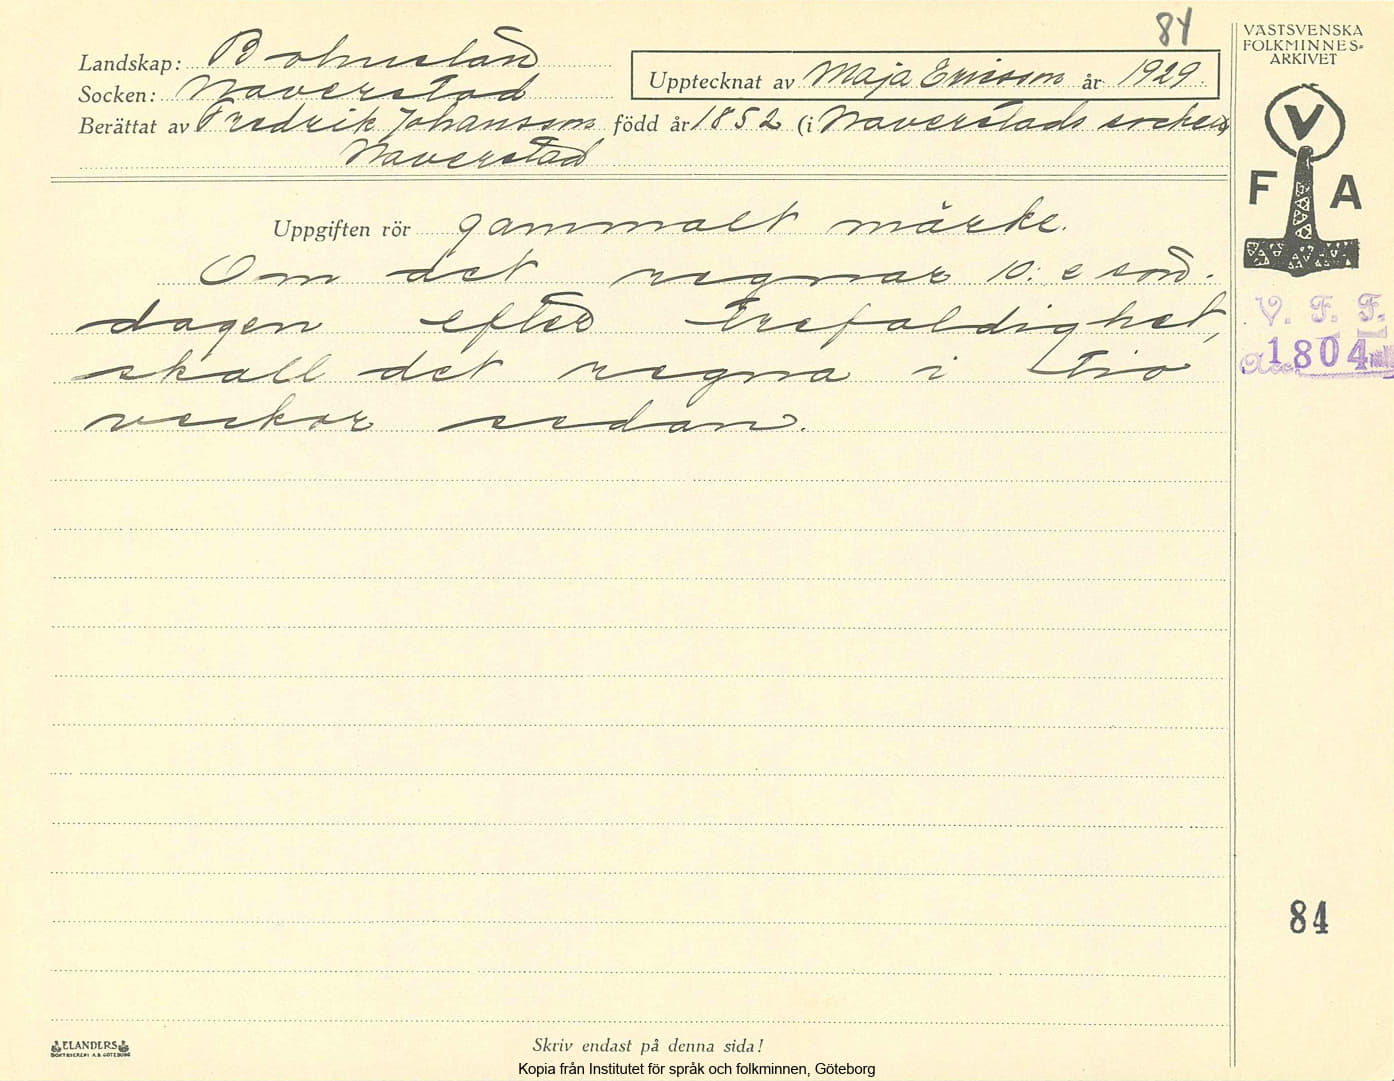 84
VÄSTSVENSKA
FOLKMINNES-
ARKIVET
Landskap: Bohuslän
Socken: Naverstad
Upptecknat av Maja Ericsson år 1929.
Berättat av Fredrik Johansson född år 1852 (i Naverstads socken)
Naverstad
V
F A
Uppgiften rör gammalt märke.
Om det regnar 10:e sön-
dagen efter Trefaldighet,
skall det regna i tio
veckor sedan.
V. F. F.
Acc 1804
84
ELANDERS
BOKTRYCKERI A.B. GÖTEBORG
Skriv endast på denna sida!
Kopia från Institutet för språk och folkminnen, Göteborg